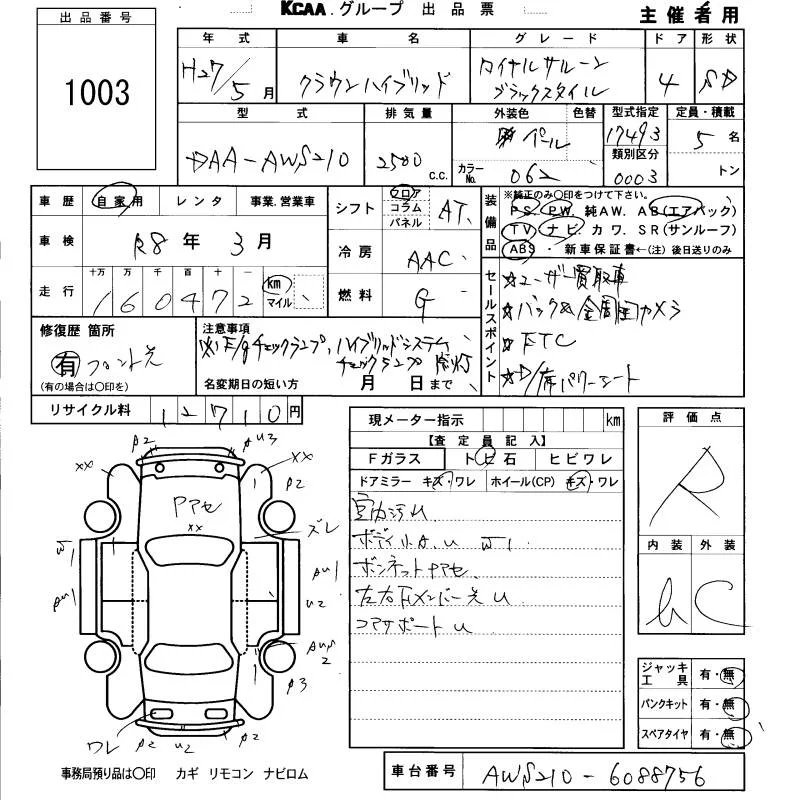 KCAA.グループ 出品票
主催者用
出品番号
1003
年式 車名 グレード ドア 形状
H27/5月 クラウンハイブリッド ロイヤルサルーン ブラックスタイル 4 SD
型式 排気量 外装色 色替 型式指定 定員・積載
DAA-AWS210 2500 c.c. パール 17493 5名
カラーNo. 062 類別区分 0003 トン
車歴 自家用 レンタ 事業.営業車
車検 R8年 3月
走行 十万 万 千 百 十 一 km マイル
160472
シフト フロア コラム パネル AT
冷房 AAC
燃料 G
装備品 ※純正のみ○印をつけて下さい。
PS. PW. 純AW. AB(エアバック)
TV ナビ. カワ. SR(サンルーフ)
ABS 新車保証書←(注)後日送りのみ
セールスポイント
☆ユーザー買取車
☆バック&全周囲カメラ
☆ETC
☆D/席パワーシート
修復歴 箇所
有 フロント
(有の場合は○印を)
注意事項
※E/gチェックランプ,ハイブリッドシステム
チェックランプ 点灯
名変期日の短い方 月 日まで
リサイクル料 12710円
現メーター指示 km
【査定員記入】
Fガラス トビ石 ヒビワレ
ドアミラー キズ・ワレ ホイール(CP) キズ・ワレ
室内汚れU
ボディ小A.U W1
ボンネットPアセ
左右Fメンバー先U
コアサポートU
評価点
R
内装 外装
C
ジャッキ 工具 有・無
パンクキット 有・無
スペアタイヤ 有・無
P2 AU3
XX XX
P2
Pアセ
XX
ズレ
W1
AU1
U2
P3
ワレ P2 U2 P2
事務局預り品は○印 カギ リモコン ナビロム
車台番号 AWS210-6088756